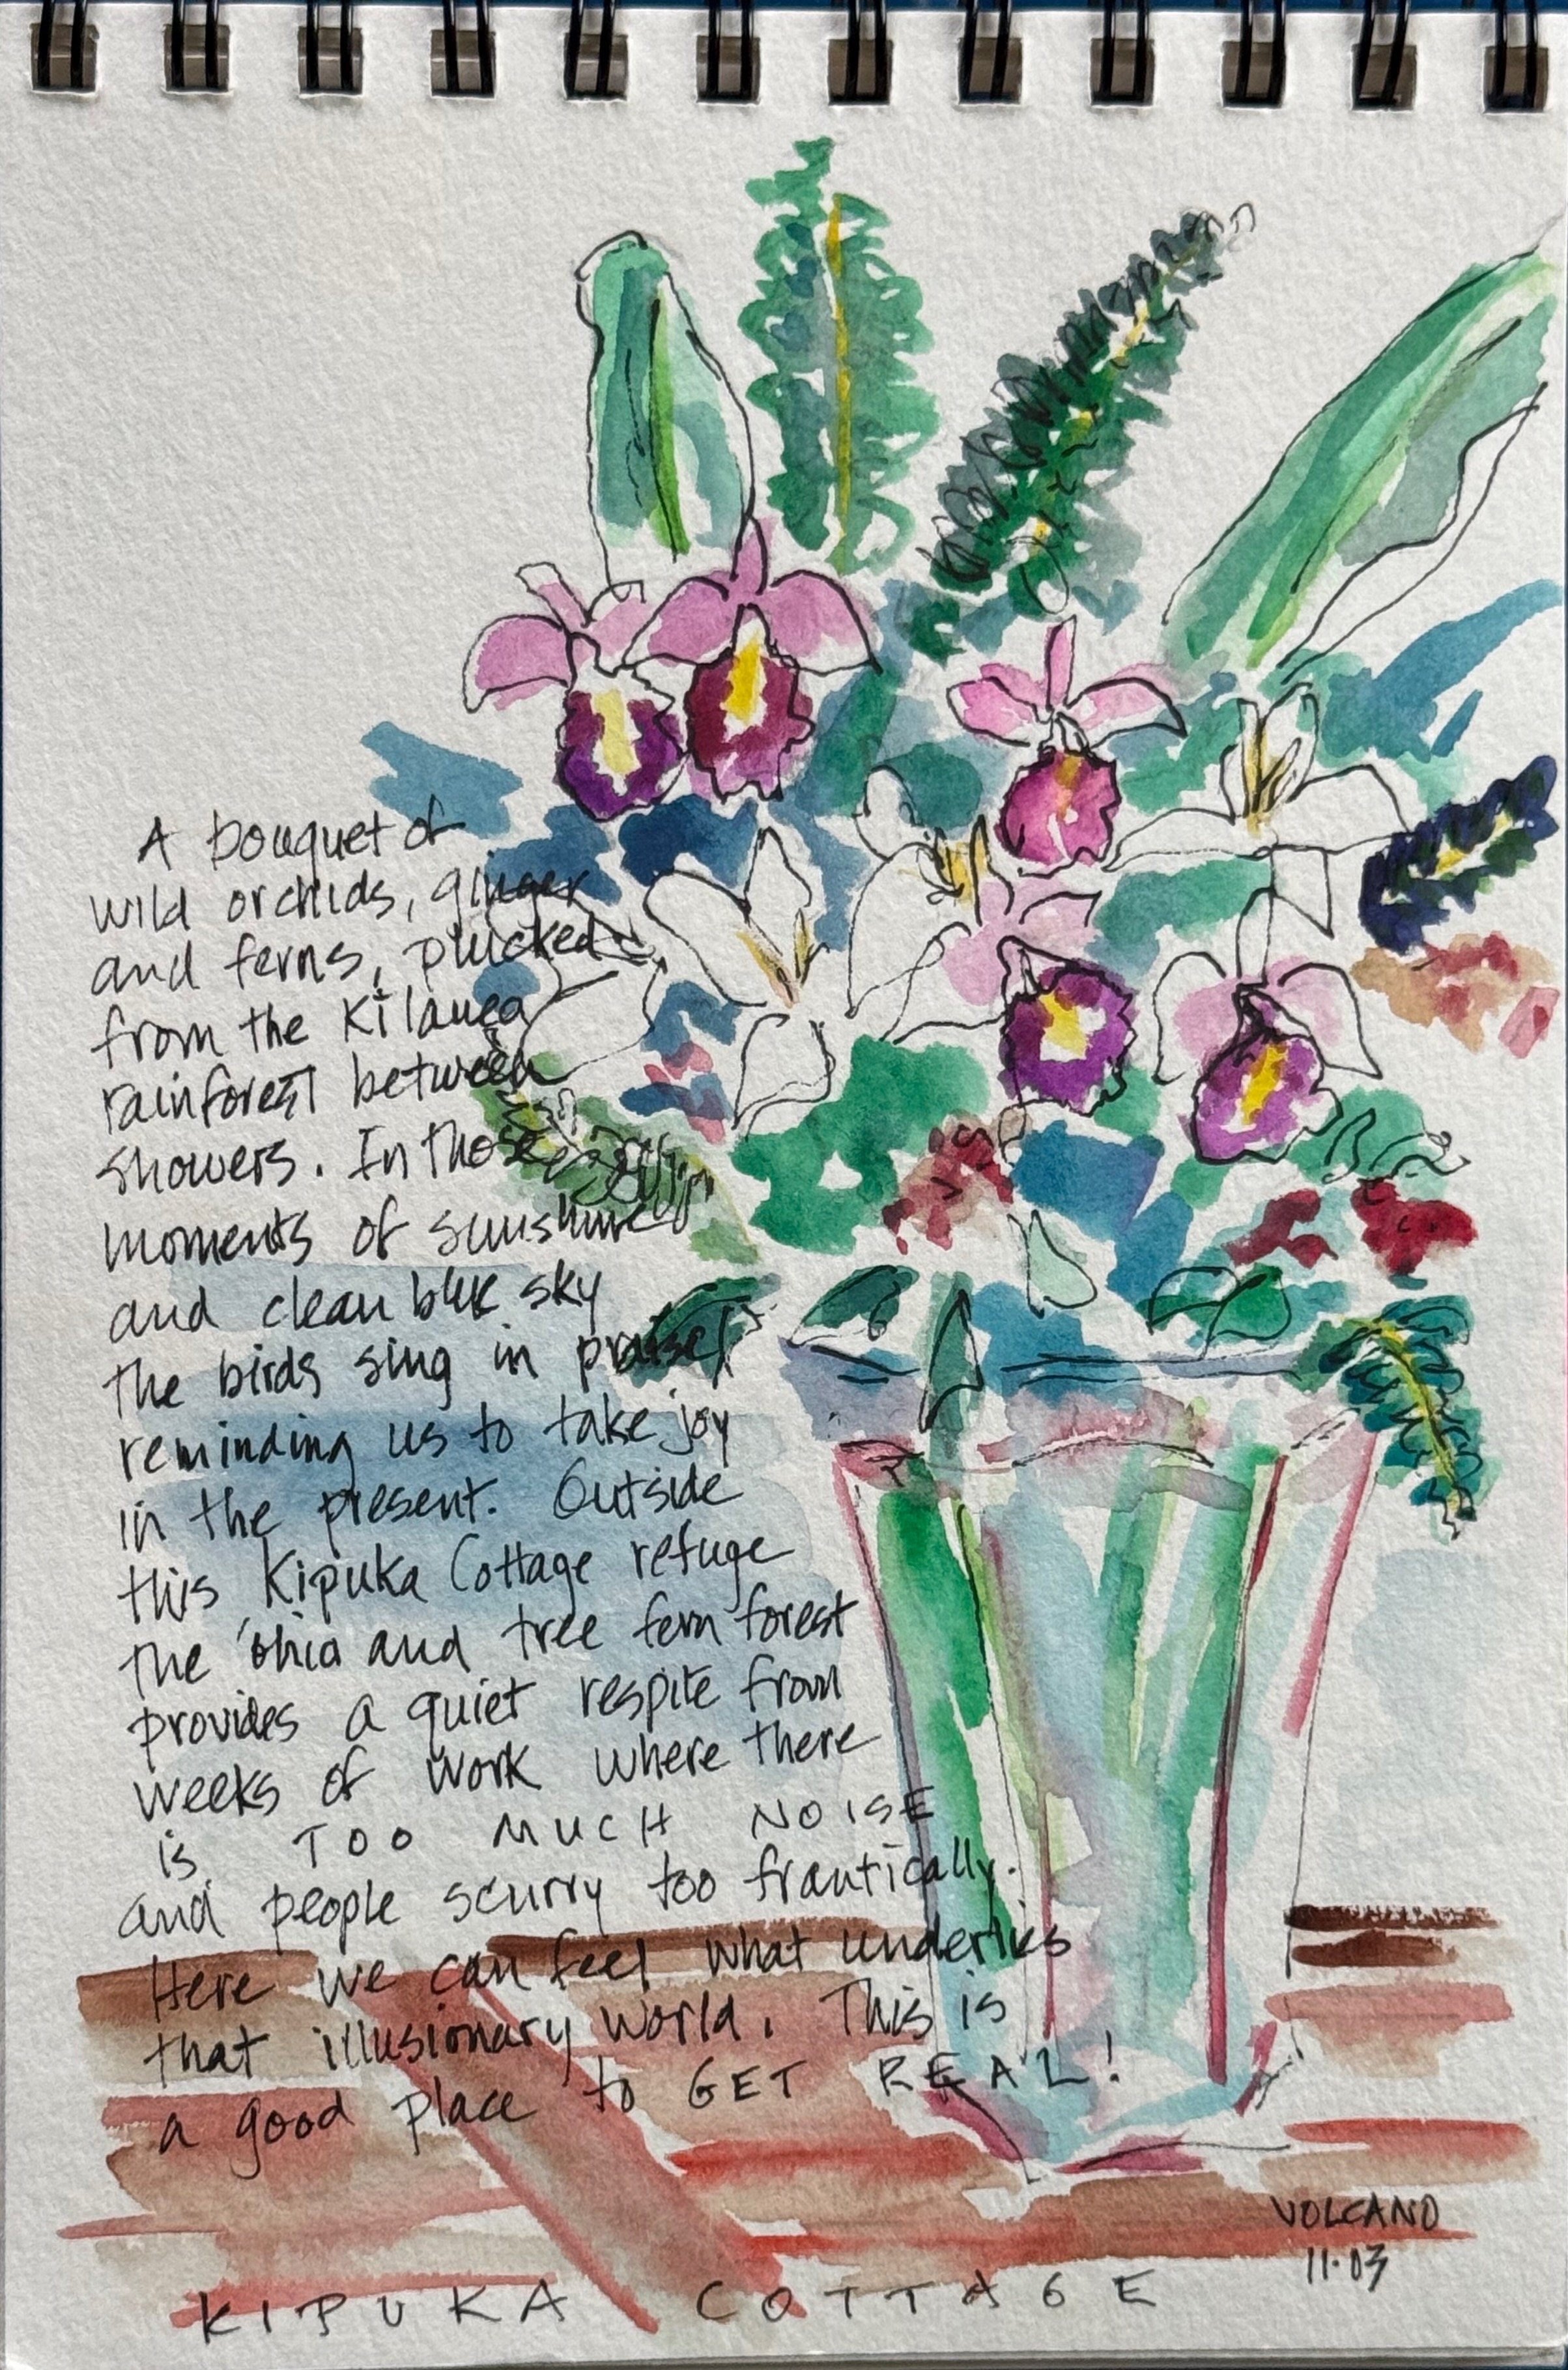 A bouquet of
wild orchids, ginger
and ferns, plucked
from the Kilauea
rainforest between
showers. In those
moments of sunshine
and clean blue sky
the birds sing in praise
reminding us to take joy
in the present. Outside
this Kipuka Cottage refuge
the 'ohia and tree fern forest
provides a quiet respite from
weeks of work where there
is TOO MUCH NOISE
and people scurry too frantically.
Here we can feel what underlies
that illusionary world. This is
a good place to GET REAL!
VOLCANO
11.03
KIPUKA COTTAGE